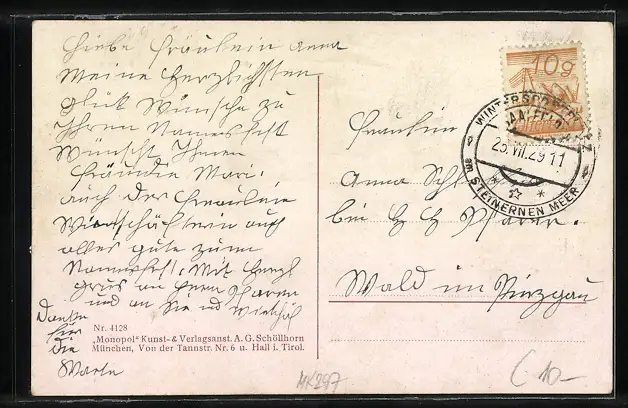 Liebe Fräulein Anna
Meine Herzlichsten
Glück Wünsche zu
Ihren Namensfest
Wünscht Ihnen
Mari.
auch der Fräulein
Wirtschäfterin auch
alles gute zum
Namensfest. Mit Herzl
grus an Herrn Pfarrer
und an Sie
Danke
für
die
Karte
Nr. 4128
„Monopol“ Kunst- & Verlagsanst. A. G. Schöllhorn
München, Von der Tannstr. Nr. 6 u. Hall i. Tirol.
10g
WINTERSPORT
SAALFELDEN
25.VII.29 11
AM STEINERNEN MEER
Fräulein
Anna
bei H H Pfarrer.
Wald im Pinzgau
MK297
C 10-